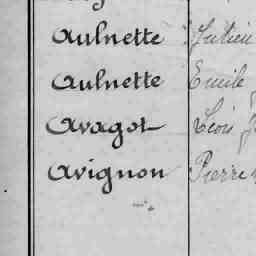 Aulnette Julien
Aulnette Emile
Avagot Léon
Avignon Pierre